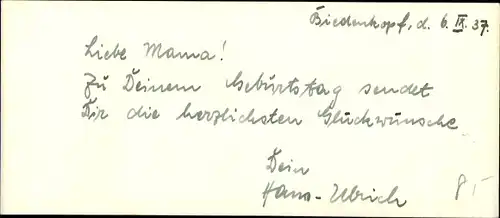 Biedenkopf, d. 6. IX. 37.
Liebe Mama!
Zu Deinem Geburtstag sendet
Dir die herzlichsten Glückwünsche
Dein
Hans-Ulrich
8,-